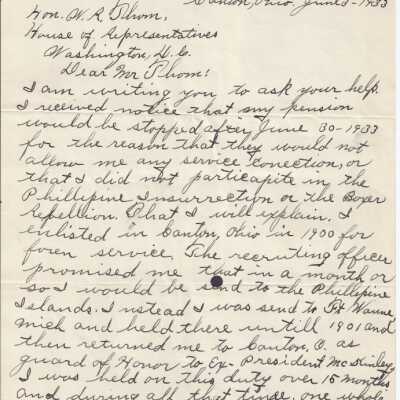 Canton, Ohio, June 5 - 1933
Hon. W. R. Thom.
House of Representatives
Washington, D.C.
Dear Mr Thom:
I am writing you to ask your help.
I received notice that my pension
would be stopped after June 30-1933
for the reason that they would not
allow me any service conection, or
that I did not particapite in the
Phillipine Insurrection or the Boxer
Rebellion. That I will explain. I
enlisted in Canton, Ohio in 1900 for
foren service. The recruiting officer
promised me that in a month or
so I would be send to the Phillipine
Islands. Instead I was send to Ft Wayne
Mich and held there untill 1901 and
then returned me to Canton, O. as
guard of Honor to Ex-President McKinley
I was held on this duty over 15 months
and during all that time, one whole